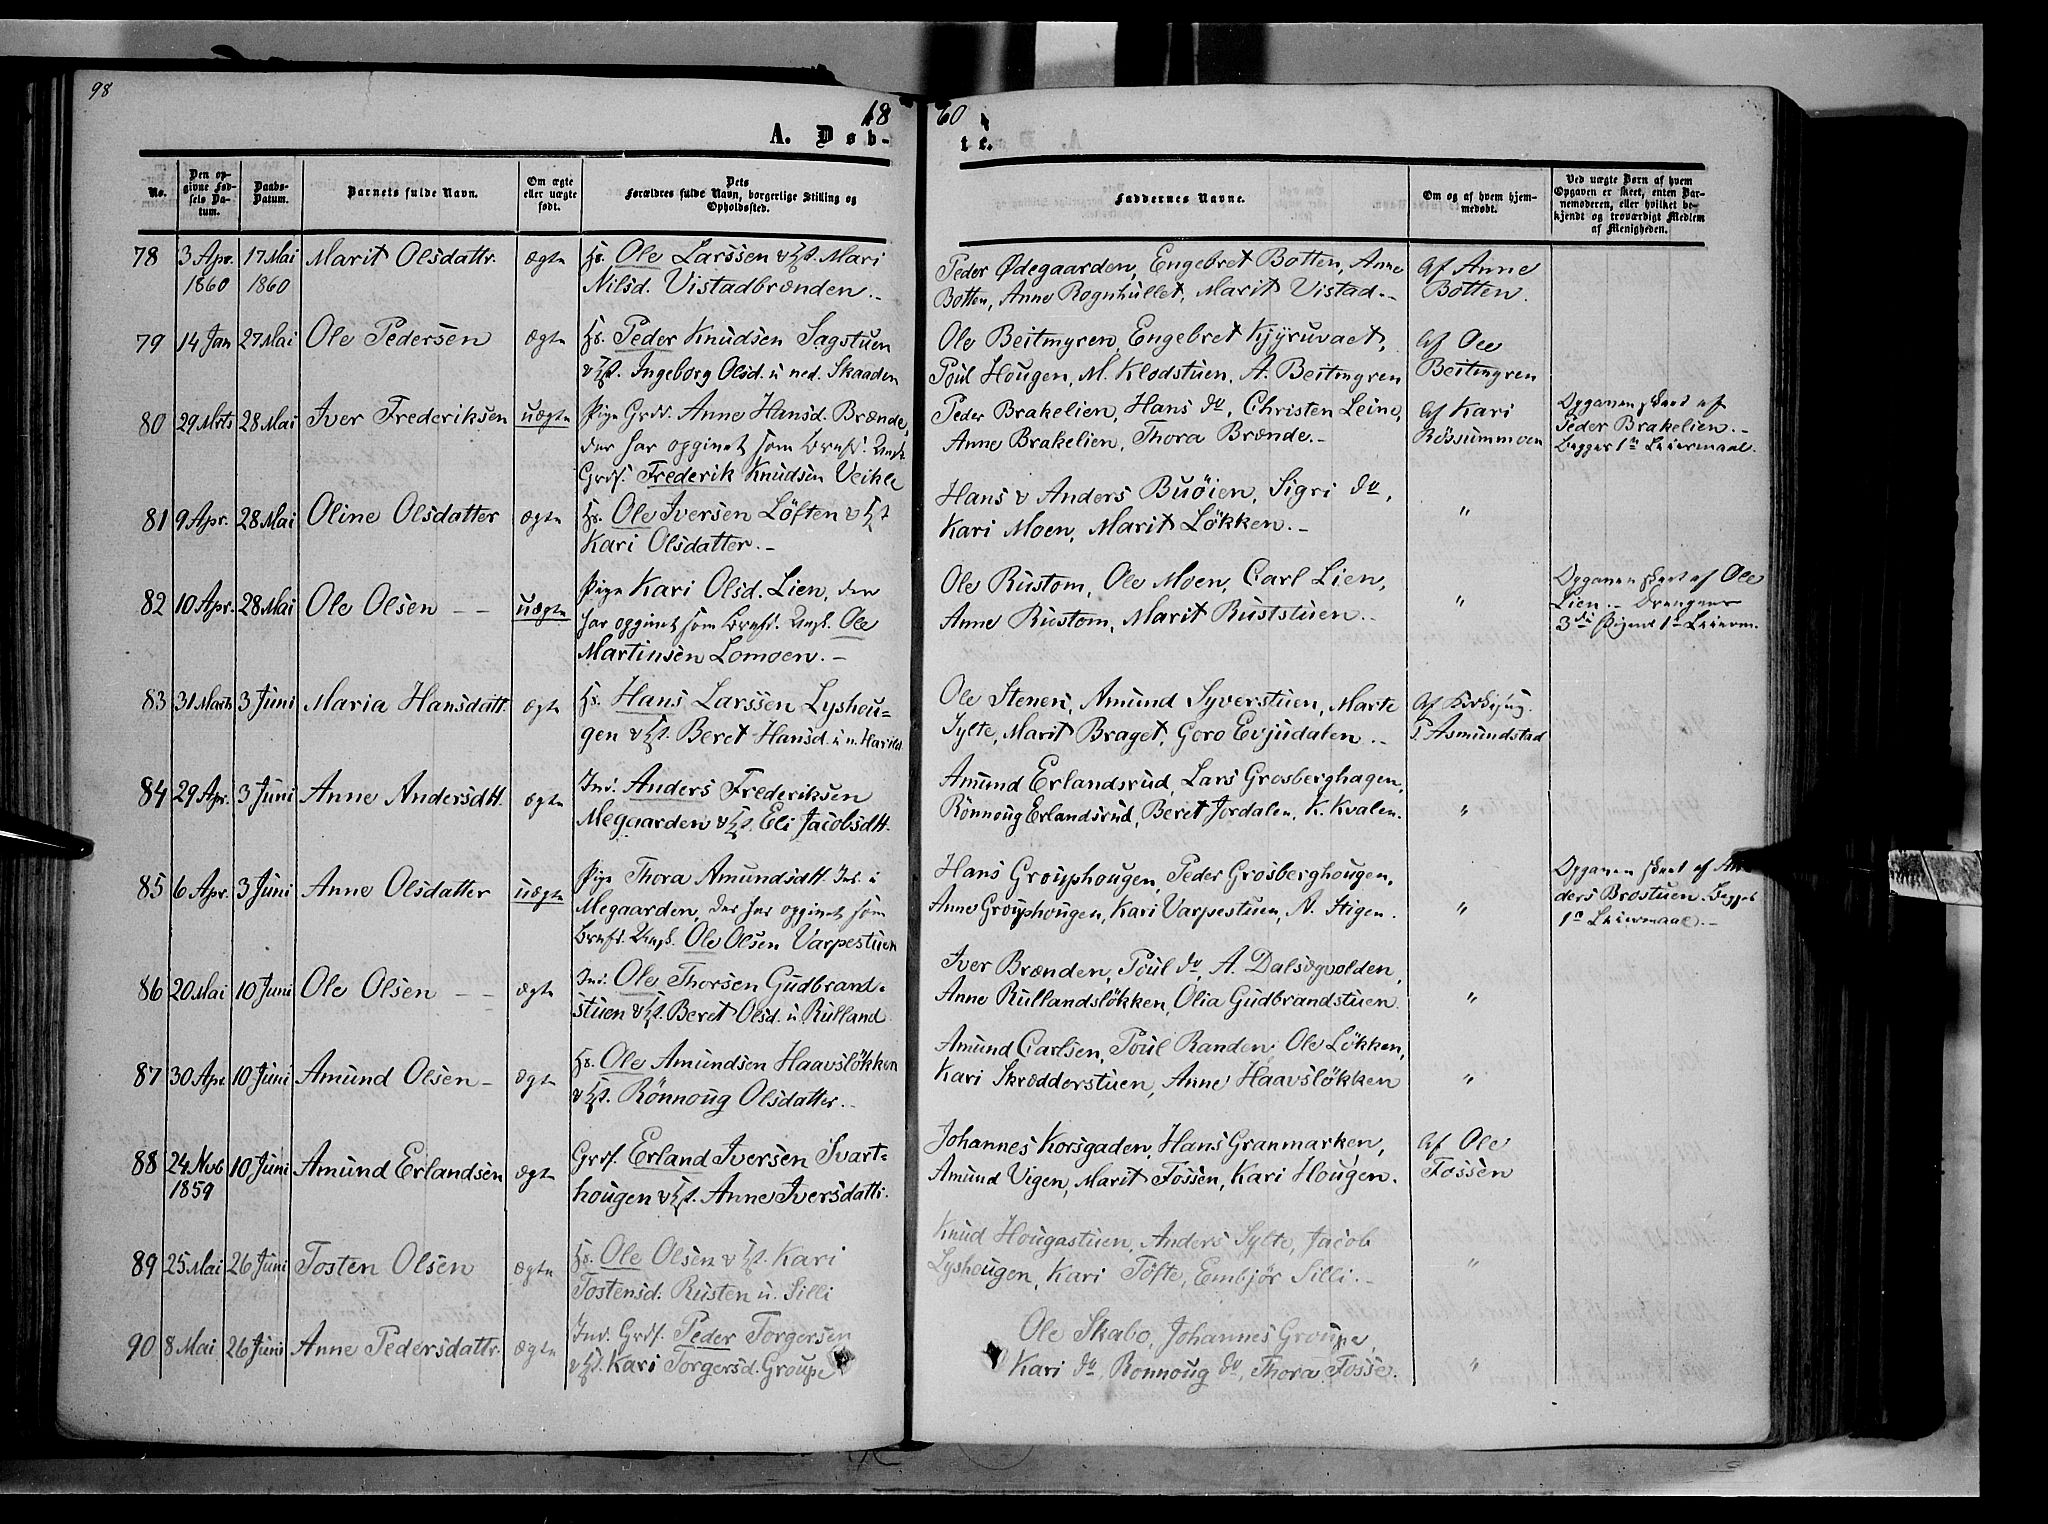 98
18
60
A. Døb-
te.
No.
Den op-
givne Fød-
sels Da-
tum.
Daabs-
Datum.
Barnets fulde Navn.
Om ægte
eller uægte
født.
Dets
Forældres fulde Navn, borgerlige Stilling og
Opholdssted.
Faddernes Navne.
Om og af hvem hjem-
medøbt.
Ved uægte Børn af hvem
Opgaven er skeet, enten Bar-
nemoderen, eller hvilket be-
kjendt og troværdigt Medlem
af Menigheden.
78 3 Apr. 17 Mai Marit Olsdattr. ægte Hs. Ole Larssen & Hst. Mari
1860 1860 Nilsd. Vistadbrænden.
Peder Ødegaarden, Engebret Botten, Anne
Botten, Anne Rognhullet, Marit Vistad.
Af Anne
Botten.
79 14 Jan 27 Mai Ole Pedersen ægte Hs. Peder Knudsen Sagstuen
& Hst. Ingeborg Olsd. u ned. Skaaden
Ole Beitmyren, Engebret Kjÿruvaet,
Poul Hougen, M. Klodstuen, A. Beitmyren
Af Ole
Beitmyren
80 29 Mrts 28 Mai Iver Frederiksen uægte Pige Grdr. Anne Hansd. Brænde,
der har opgivet som Brnfd. Ungk.
Grdf. Frederik Knudsen Veikle
Peder Brakelien, Hans do, Christen Leine,
Anne Brakelien, Thora Brænde.
Af Kari
Røssummoen
Opgaven skeet af
Peder Brakelien.
Begges 1e Leiermaal.
81 9 Apr. 28 Mai Oline Olsdatter ægte Hs. Ole Iversen Løften & Hst
Kari Olsdatter.
Hans & Anders Buøien, Sigri do,
Kari Moen, Marit Løkken.
"
82 10 Apr. 28 Mai Ole Olsen uægte Pige Kari Olsd. Lien, der
har opgivet som Brnfd. Ungk. Ole
Martinsen Lomoen.
Ole Rustom, Ole Moen, Carl Lien,
Anne Rustom, Marit Ruststuen.
"
Opgaven skeet af Ole
Lien. Drengens
3die Pigens 1e Leierm.
83 31 Marts 3 Juni Maria Hansdatt. ægte Hs. Hans Larssen Lyshou-
gen & Hst. Beret Hansd. u n.
Ole Stenen, Amund Syverstuen, Marte
Sylte, Marit Braget, Goro Evjudalen.
Af
P. Asmundstad
84 29 Apr. 3 Juni Anne Andersdtt. ægte Ind. Anders Frederiksen
Megaarden & Hst. Eli Jacobsdtt.
Amund Erlandsrud, Lars Grosberghagen,
Rønnoug Erlandsrud, Beret Jordalen, K. Kvalen.
"
85 6 Apr. 3 Juni Anne Olsdatter uægte Pige Thora Amundsdtt. Ind. i
Megaarden, der har opgivet som
Brnfd. Ungk. Ole Olsen Varpestuen
Hans Grouphougen, Peder Grosberghougen,
Anne Grouphougen, Kari Varpestuen, N. Stigen.
"
Opgaven skeet af An-
ders Brostuen. Begges
1e Leiermaal.
86 20 Mai 10 Juni Ole Olsen ægte Ind. Ole Thorsen Gudbrand-
stuen & Hst. Beret Olsd. u Rulland
Iver Brænden, Poul do, A. Dalsægvolden,
Anne Rullandsløkken, Olia Gudbrandstuen.
"
87 30 Apr. 10 Juni Amund Olsen ægte Hs. Ole Amundsen Haavsløkken
& Hst. Rønnoug Olsdatter.
Amund Carlsen, Poul Randen, Ole Løkken,
Kari Skrædderstuen, Anne Haavsløkken
"
88 24 Nvb 10 Juni Amund Erlandsen ægte Grdf. Erland Iversen Svart-
1859 hougen & Hst. Anne Iversdattr.
Johannes Korsgaden, Hans Granmarken,
Amund Vigen, Marit Fossen, Kari Hougen.
Af Ole
Fossen
89 25 Mai 26 Juni Tosten Olsen ægte Hs. Ole Olsen & Hst. Kari
Tostensd. Rusten u. Silli
Knud Hougastuen, Anders Sylte, Jacob
Lyshougen, Kari Tofte, Embjør Silli.
"
90 8 Mai 26 Juni Anne Pedersdattr. ægte Ind. Grdf. Peder Torgersen
& Hst. Kari Torgersd. Groupe
Ole Skabo, Johannes Groupe,
Kari do, Ronnoug do, Thora Fosse.
"